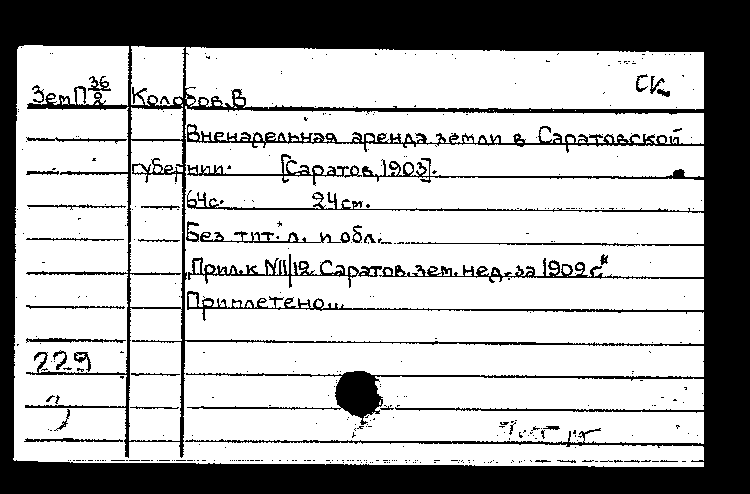 СК
ЗемП 36/2 Колобов, В
Вненадельная аренда земли в Саратовской
губернии. [Саратов, 1903].
64с. 24см.
Без тит. л. и обл.
„Прил. к №11/12 Саратов. зем. нед. за 1902 г."
Приплетено...
229